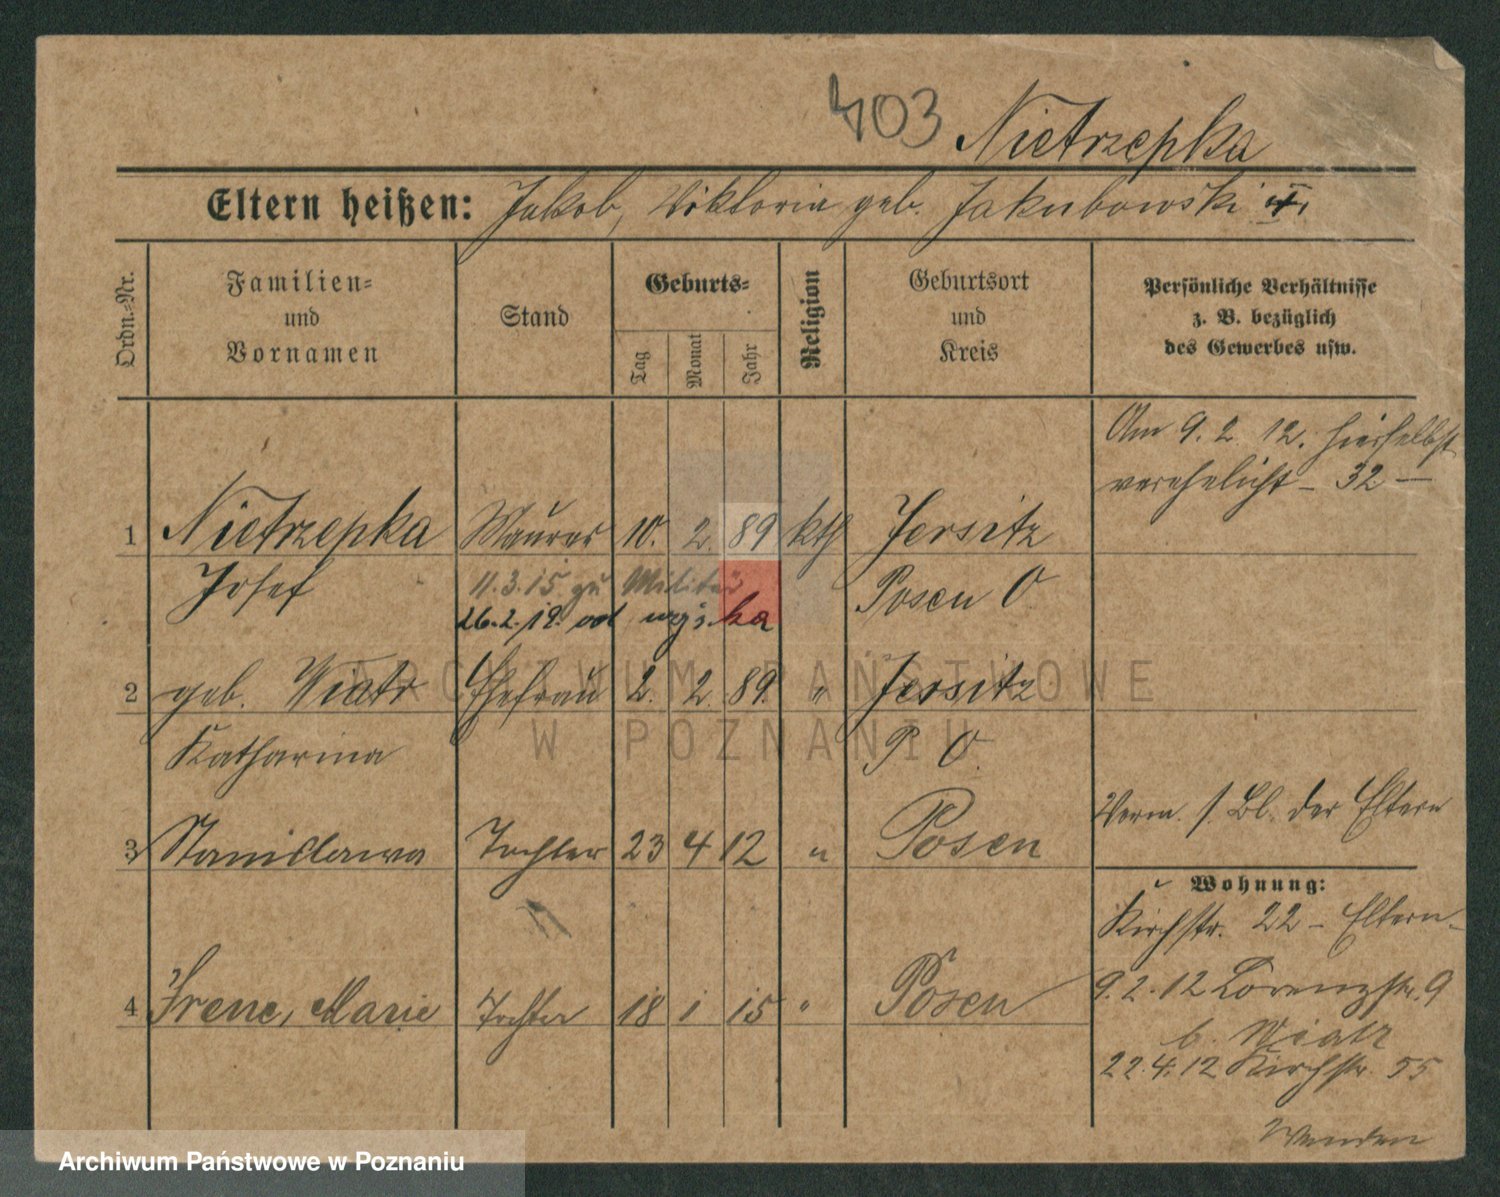 403 Nietrzepka
Eltern heißen: Jakob, Viktoria geb. Jakubowski
Ordn.=Nr.
Familien=
und
Vornamen
Stand
Geburts=
Tag
Monat
Jahr
Religion
Geburtsort
und
Kreis
Persönliche Verhältnisse
z. B. bezüglich
des Gewerbes usw.
Am 9. 2. 12. hierselbst
verehelicht – 32 –
1 Nietrzepka Maurer 10. 2. 89 kth Jersitz
Josef 11.3.15 zu Militär Posen O
26.2.19. od wojska
2 geb. Wiatr Ehefrau 2. 2. 89 " Jersitz
Katharina P O.
Verm. s. Bl. der Eltern
3 Stanislawa Tochter 23 4 12 " Posen
Wohnung:
Kirchstr. 22 – Eltern –
4 Irene, Marie Tochter 18 1 15 " Posen
9.2.12 Lorenzstr. 9
b. Wiatr
22.4.12 Kirchstr. 55
Wenden
ARCHIWUM PAŃSTWOWE
W POZNANIU
Archiwum Państwowe w Poznaniu